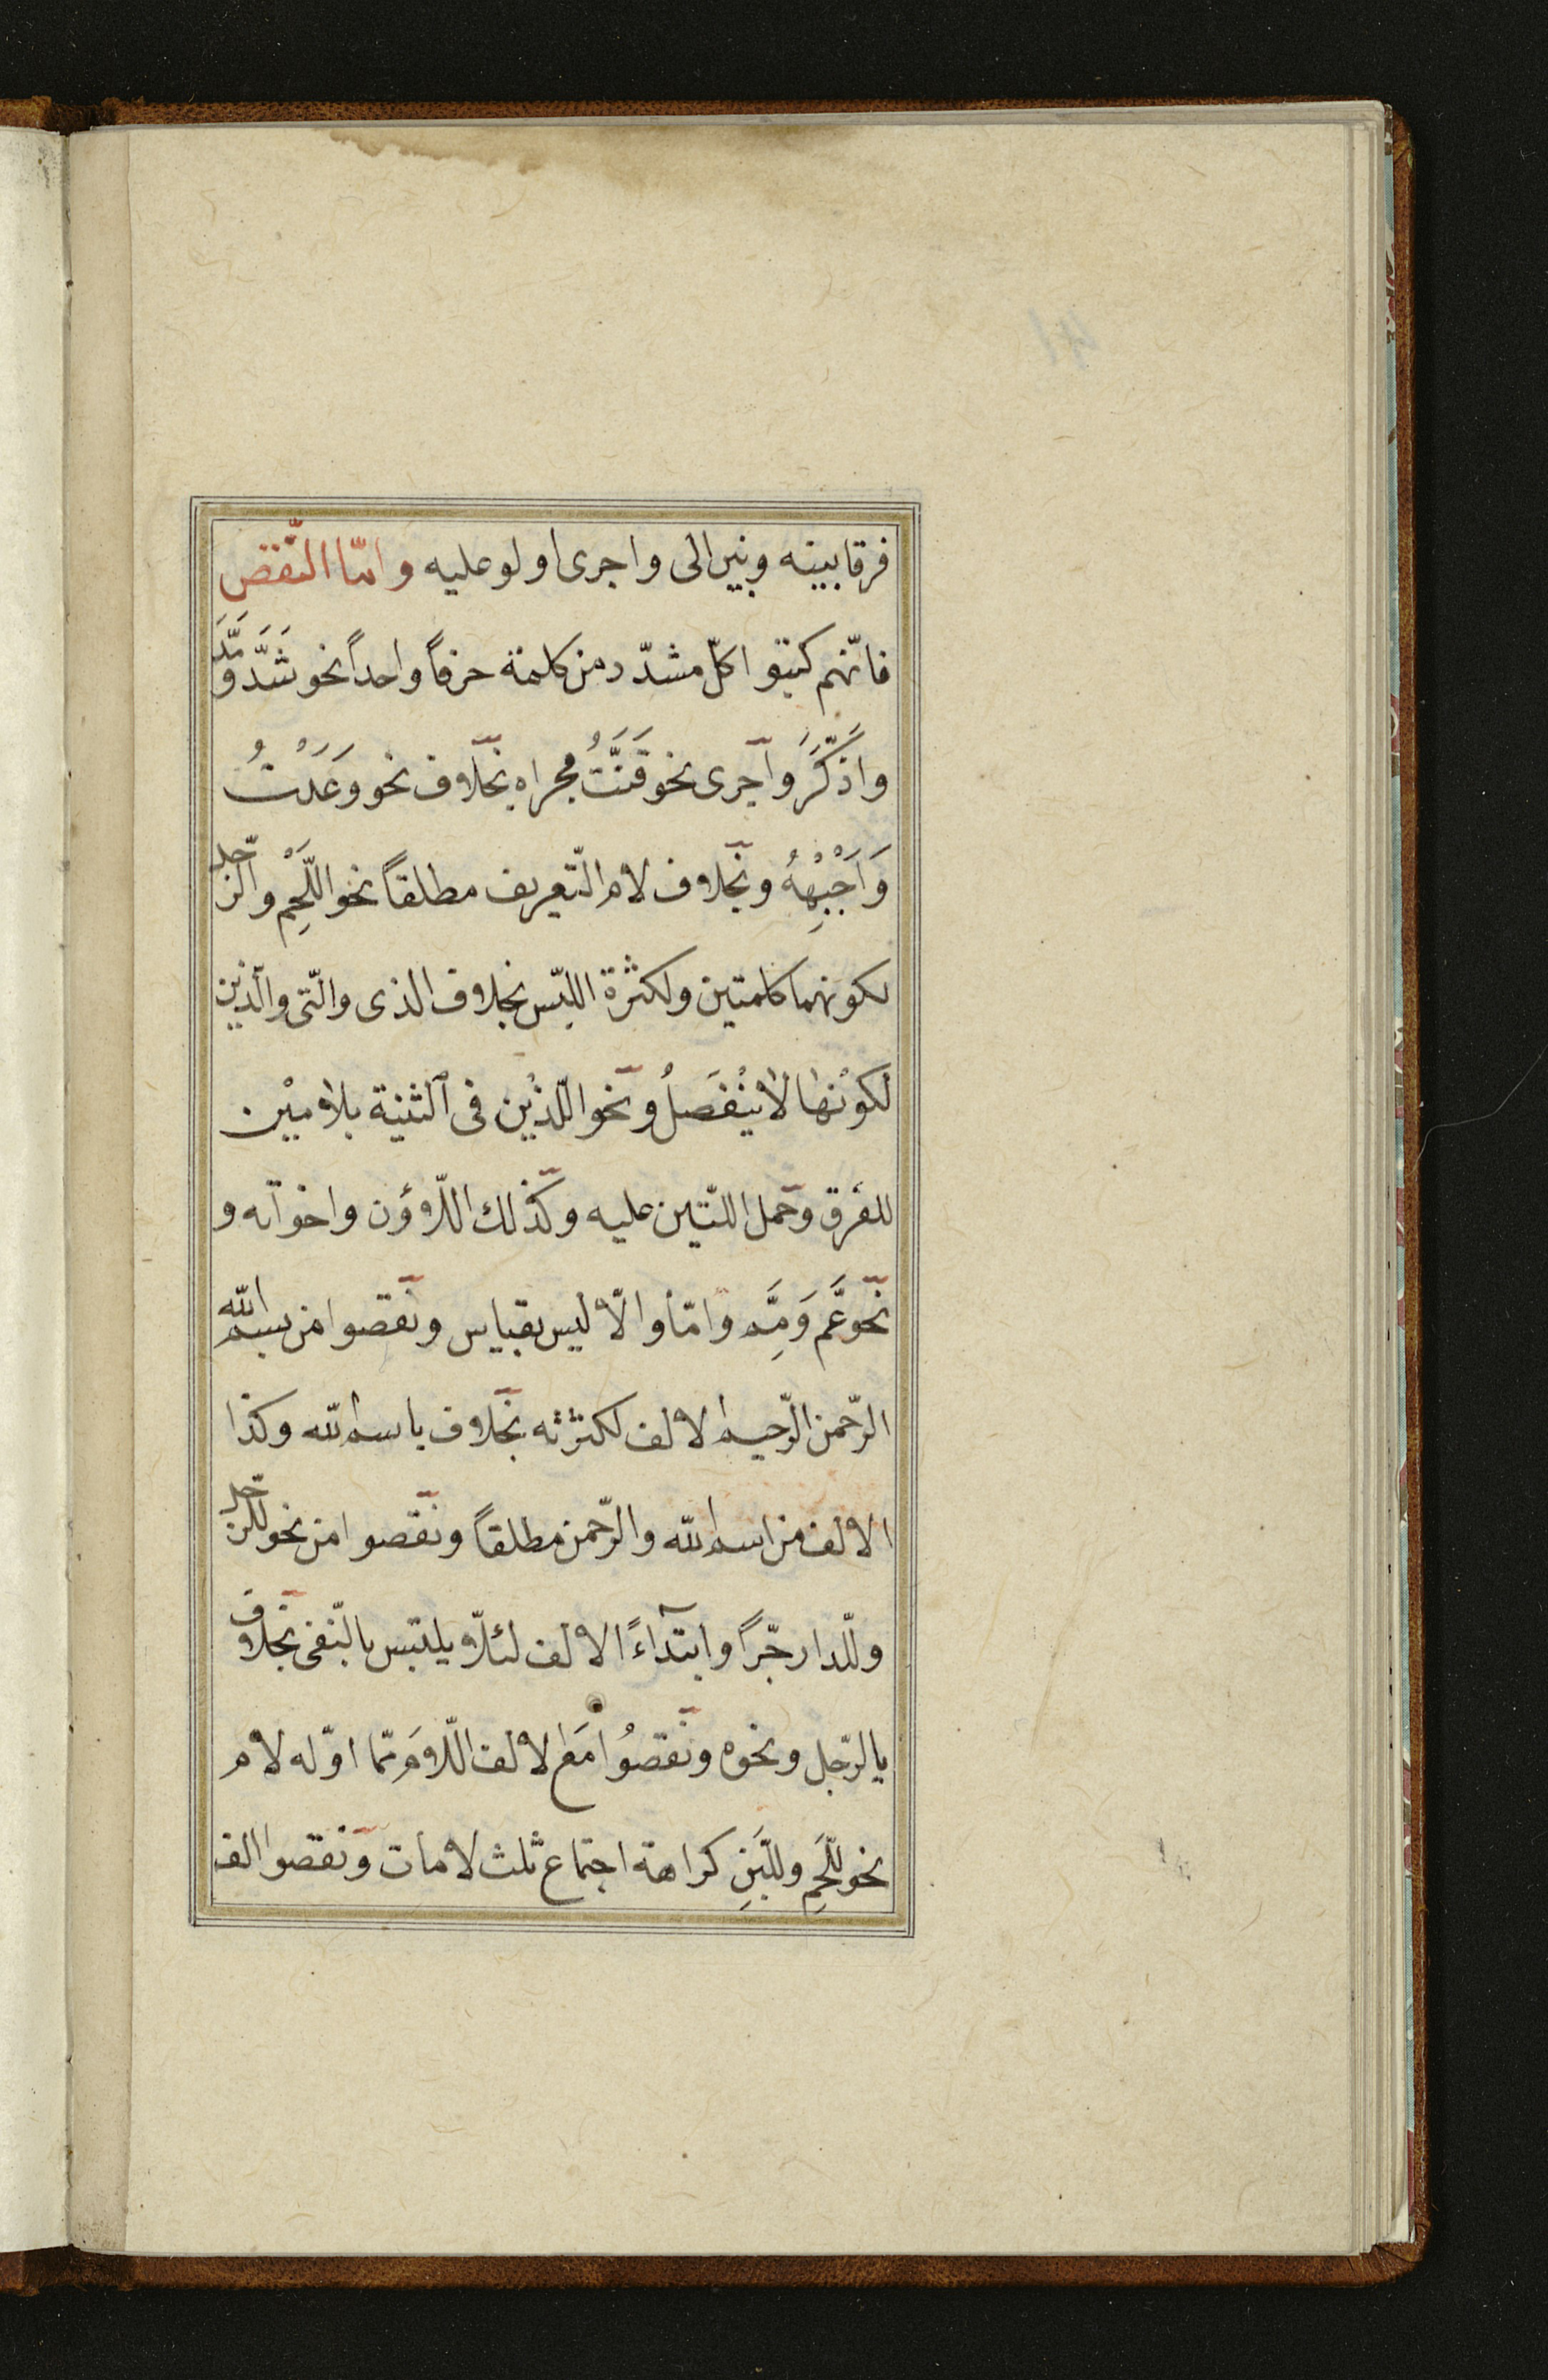 فرقا بينه وبين الى واجرى اولو عليه وامّا النّقص
فانّهم كتبوا كلّ مشدّد من كلمة حرفاً واحداً نحو شَدَّ وَمَدَّ
واذَّكَّرَ وآجرى نحو قَتَتُّ مجراه بخلاف نحو وَعَدْتُ
وَاَجْبِهْهُ وبخلاف لام التّعريف مطلقاً نحو اللَّحْمِ والرّجل
لكونهما كلمتين ولكثرة اللبّس بخلاف الذى والّتى والّذين
لكونها لا ينْفَصلُ ونحو اللّذيْن فى الثنية بلاميْن
للفرق وحمل اللتّين عليه وكذلك اللّاؤن واخواته و
نحو عَمَّ وَمِمَّ وامّا والّا ليس بقياس ونقصوا من بسم الله
الرّحمن الرّحيم الالف لكثرته بخلاف باسم الله وكذا
الالف من اسم الله والرّحمن مطلقاً ونقصوا من نحو للرّجل
وللّدار جّراً وابتدآءً الالف لئلّا يلتبس بالنّفى بخلاف
بالرّجل ونحوه ونقصُوا مَع الالف اللّام ممّا اوّله لام
نحو للَّحمِ وللّبَنِ كراهة اجتماع ثلث لامات ونقصوا الف